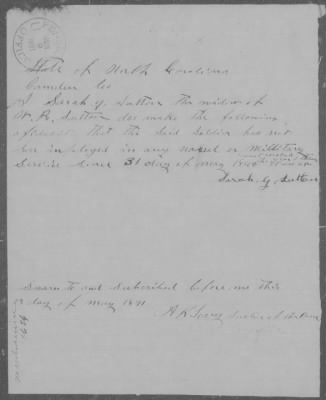 State of North Carolina
Camden Co
I Sarah G. Sutton the widow of
W. R. Sutton do make the following
affidavit that the Said Soldier has not
ben imployed in any naval or Military
Service Since 31 day of may
Sarah G Sutton
Sworn to and Subscribed before me this
day of May 1891